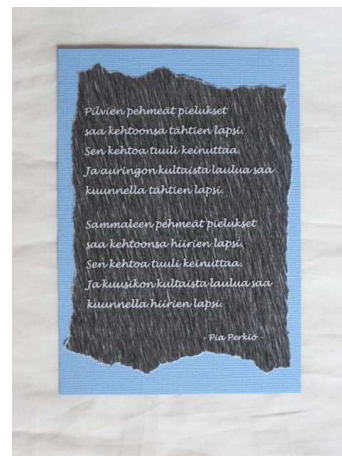 Pilvien pehmeät pielukset
saa kehtoonsa tähtien lapsi.
Sen kehtoa tuuli keinuttaa.
Ja auringon kultaista laulua saa
kuunnella tähtien lapsi.
Sammaleen pehmeät pielukset
saa kehtoonsa hiirien lapsi.
Sen kehtoa tuuli keinuttaa.
Ja kuusikon kultaista laulua saa
kuunnella hiirien lapsi.
- Pia Perkiö